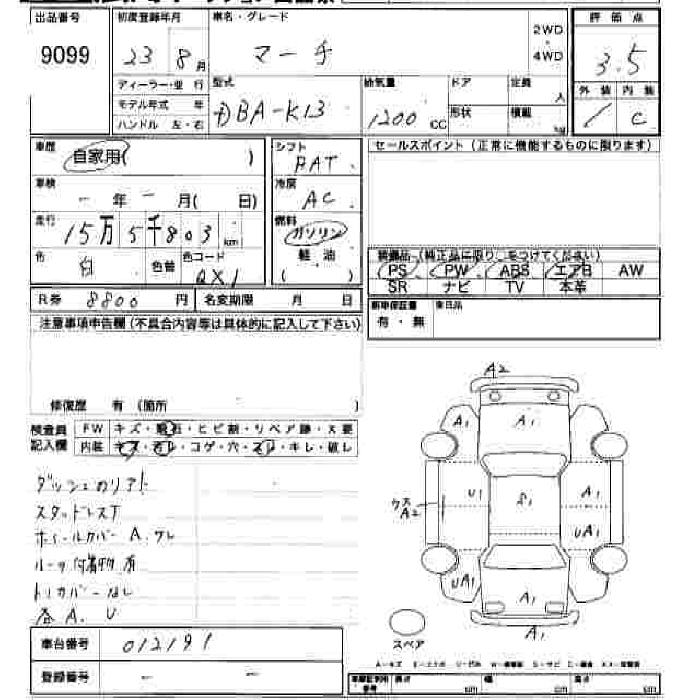 出品番号 初度登録年月 車名・グレード 評価点
9099 23 8月 マーチ 2WD・4WD 3.5
ディーラー・並行 型式 排気量 ドア 定員 人 外装 内装
モデル年式 年 DBA-K13 1200cc 形状 積載 kg / C
ハンドル 左・右
車歴 シフト セールスポイント(正常に機能するものに限ります)
自家用( )
車検 冷房 AC
- 年 - 月( 日)
走行 燃料
15万5千803km ガソリン
軽油
( )
色 白 色替 色コード QX1
装備品(純正品に限り○をつけてください)
PS PW ABS エアB AW
SR ナビ TV 本革
R券 8800円 名変期限 月 日
新車保証書 後日品
有・無
注意事項申告欄(不具合内容等は具体的に記入して下さい)
修復歴 有(箇所 )
検査員 FW キズ・飛石・ヒビ割・リペア跡・X要
記入欄 内装 キズ・汚レ・コゲ・穴・スレ・キレ・破レ
スタッドレス
ホイールカバー A.
A. U
A2
A1
A1
U1
S1
A1
ウス
A2
UA1
UA1
A1
A1
スペア
車台番号 012191
登録番号 - -
cm cm cm